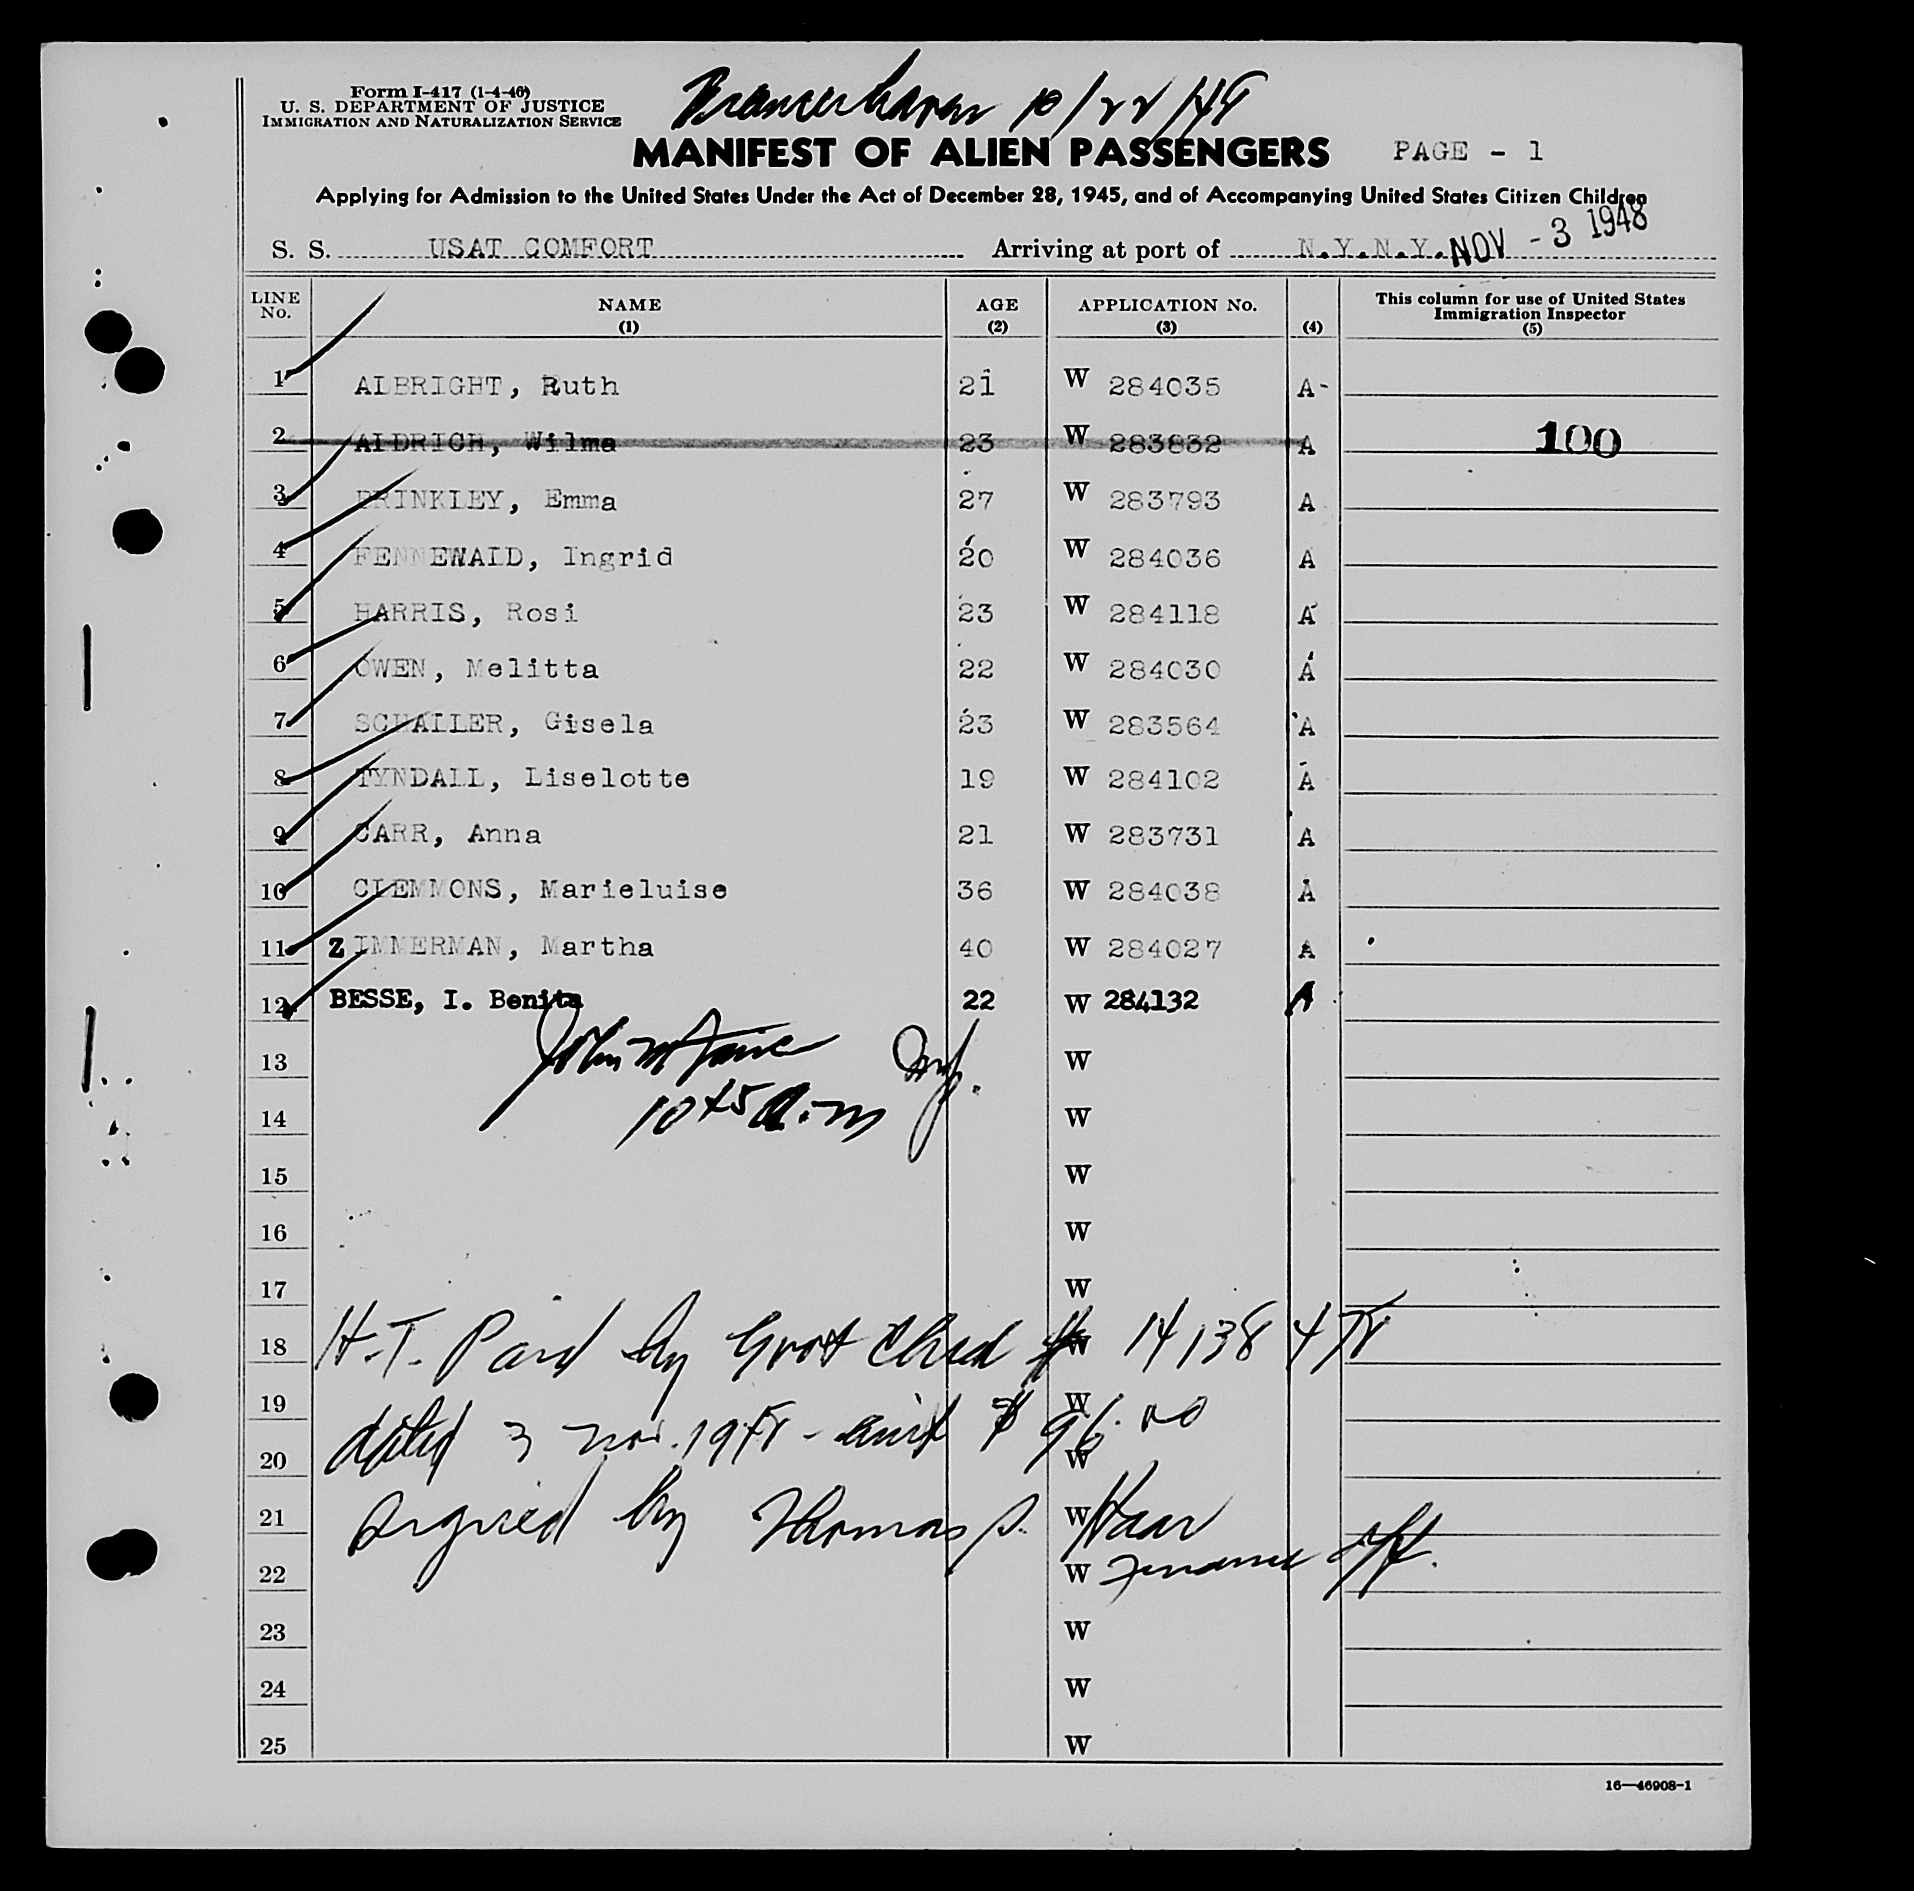 Form I-417 (1-4-46)
U. S. DEPARTMENT OF JUSTICE
IMMIGRATION AND NATURALIZATION SERVICE
Bremerhaven 10/22/48
MANIFEST OF ALIEN PASSENGERS PAGE - 1
Applying for Admission to the United States Under the Act of December 28, 1945, and of Accompanying United States Citizen Children
S. S. USAT COMFORT Arriving at port of N.Y.N.Y. NOV - 3 1948
LINE No. NAME (1) AGE (2) APPLICATION No. (3) (4) This column for use of United States Immigration Inspector (5)
1 ALBRIGHT, Ruth 21 W 284035 A
2 ALDRICH, Wilma 23 W 283832 A 100
3 BRINKLEY, Emma 27 W 283793 A
4 FENNEWALD, Ingrid 20 W 284036 A
5 HARRIS, Rosi 23 W 284118 A
6 OWEN, Melitta 22 W 284030 A
7 SCHALLER, Gisela 23 W 283564 A
8 TYNDALL, Liselotte 19 W 284102 A
9 CARR, Anna 21 W 283731 A
10 CLEMMONS, Marieluise 36 W 284038 A
11 ZIMMERMAN, Martha 40 W 284027 A
12 BESSE, I. Benita 22 W 284132 A
13 John W
14 10 45 A.M W
15 W
16 W
17 W
18 H.T. Paid by Govt Check # W 14138 478
19 W
dated 3 Nov. 1948 - amt $ 96.00
20 W
21 Signed by Thomas P. W Haar
22 W Finance Off.
23 W
24 W
25 W
16—46908-1